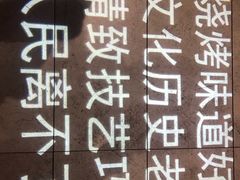 烧烤味道好
文化历史老
精致技艺巧
人民离不